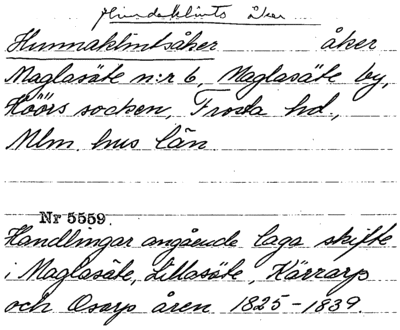 Hundaklints åker
Hunnaklintsåker åker
Maglasäte n:r 6, Maglasäte by,
Höörs socken, Frosta hd.,
Mlm. hus län
Nr 5559.
Handlingar angående laga skifte
i Maglasäte, Lillasäte, Kärrarp
och Osarp åren 1825-1839.